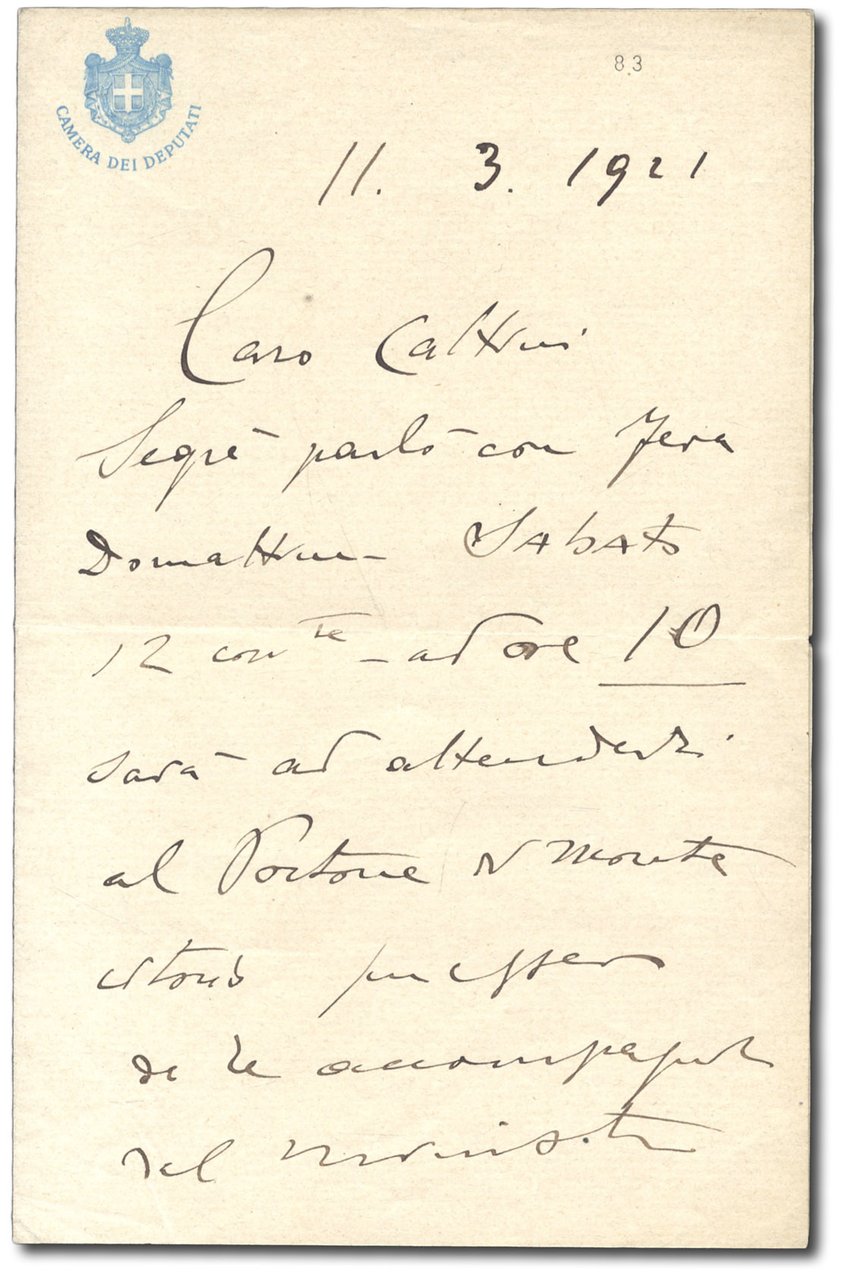 83
CAMERA DEI DEPUTATI
11. 3. 1921
Caro Cattini
Segrè parlò con Fera
Domattina Sabato
12 con te - ad ore 10
sarà ad attenderti
al Portone di Monte
citorio per essere
da te accompagnato
dal ministro